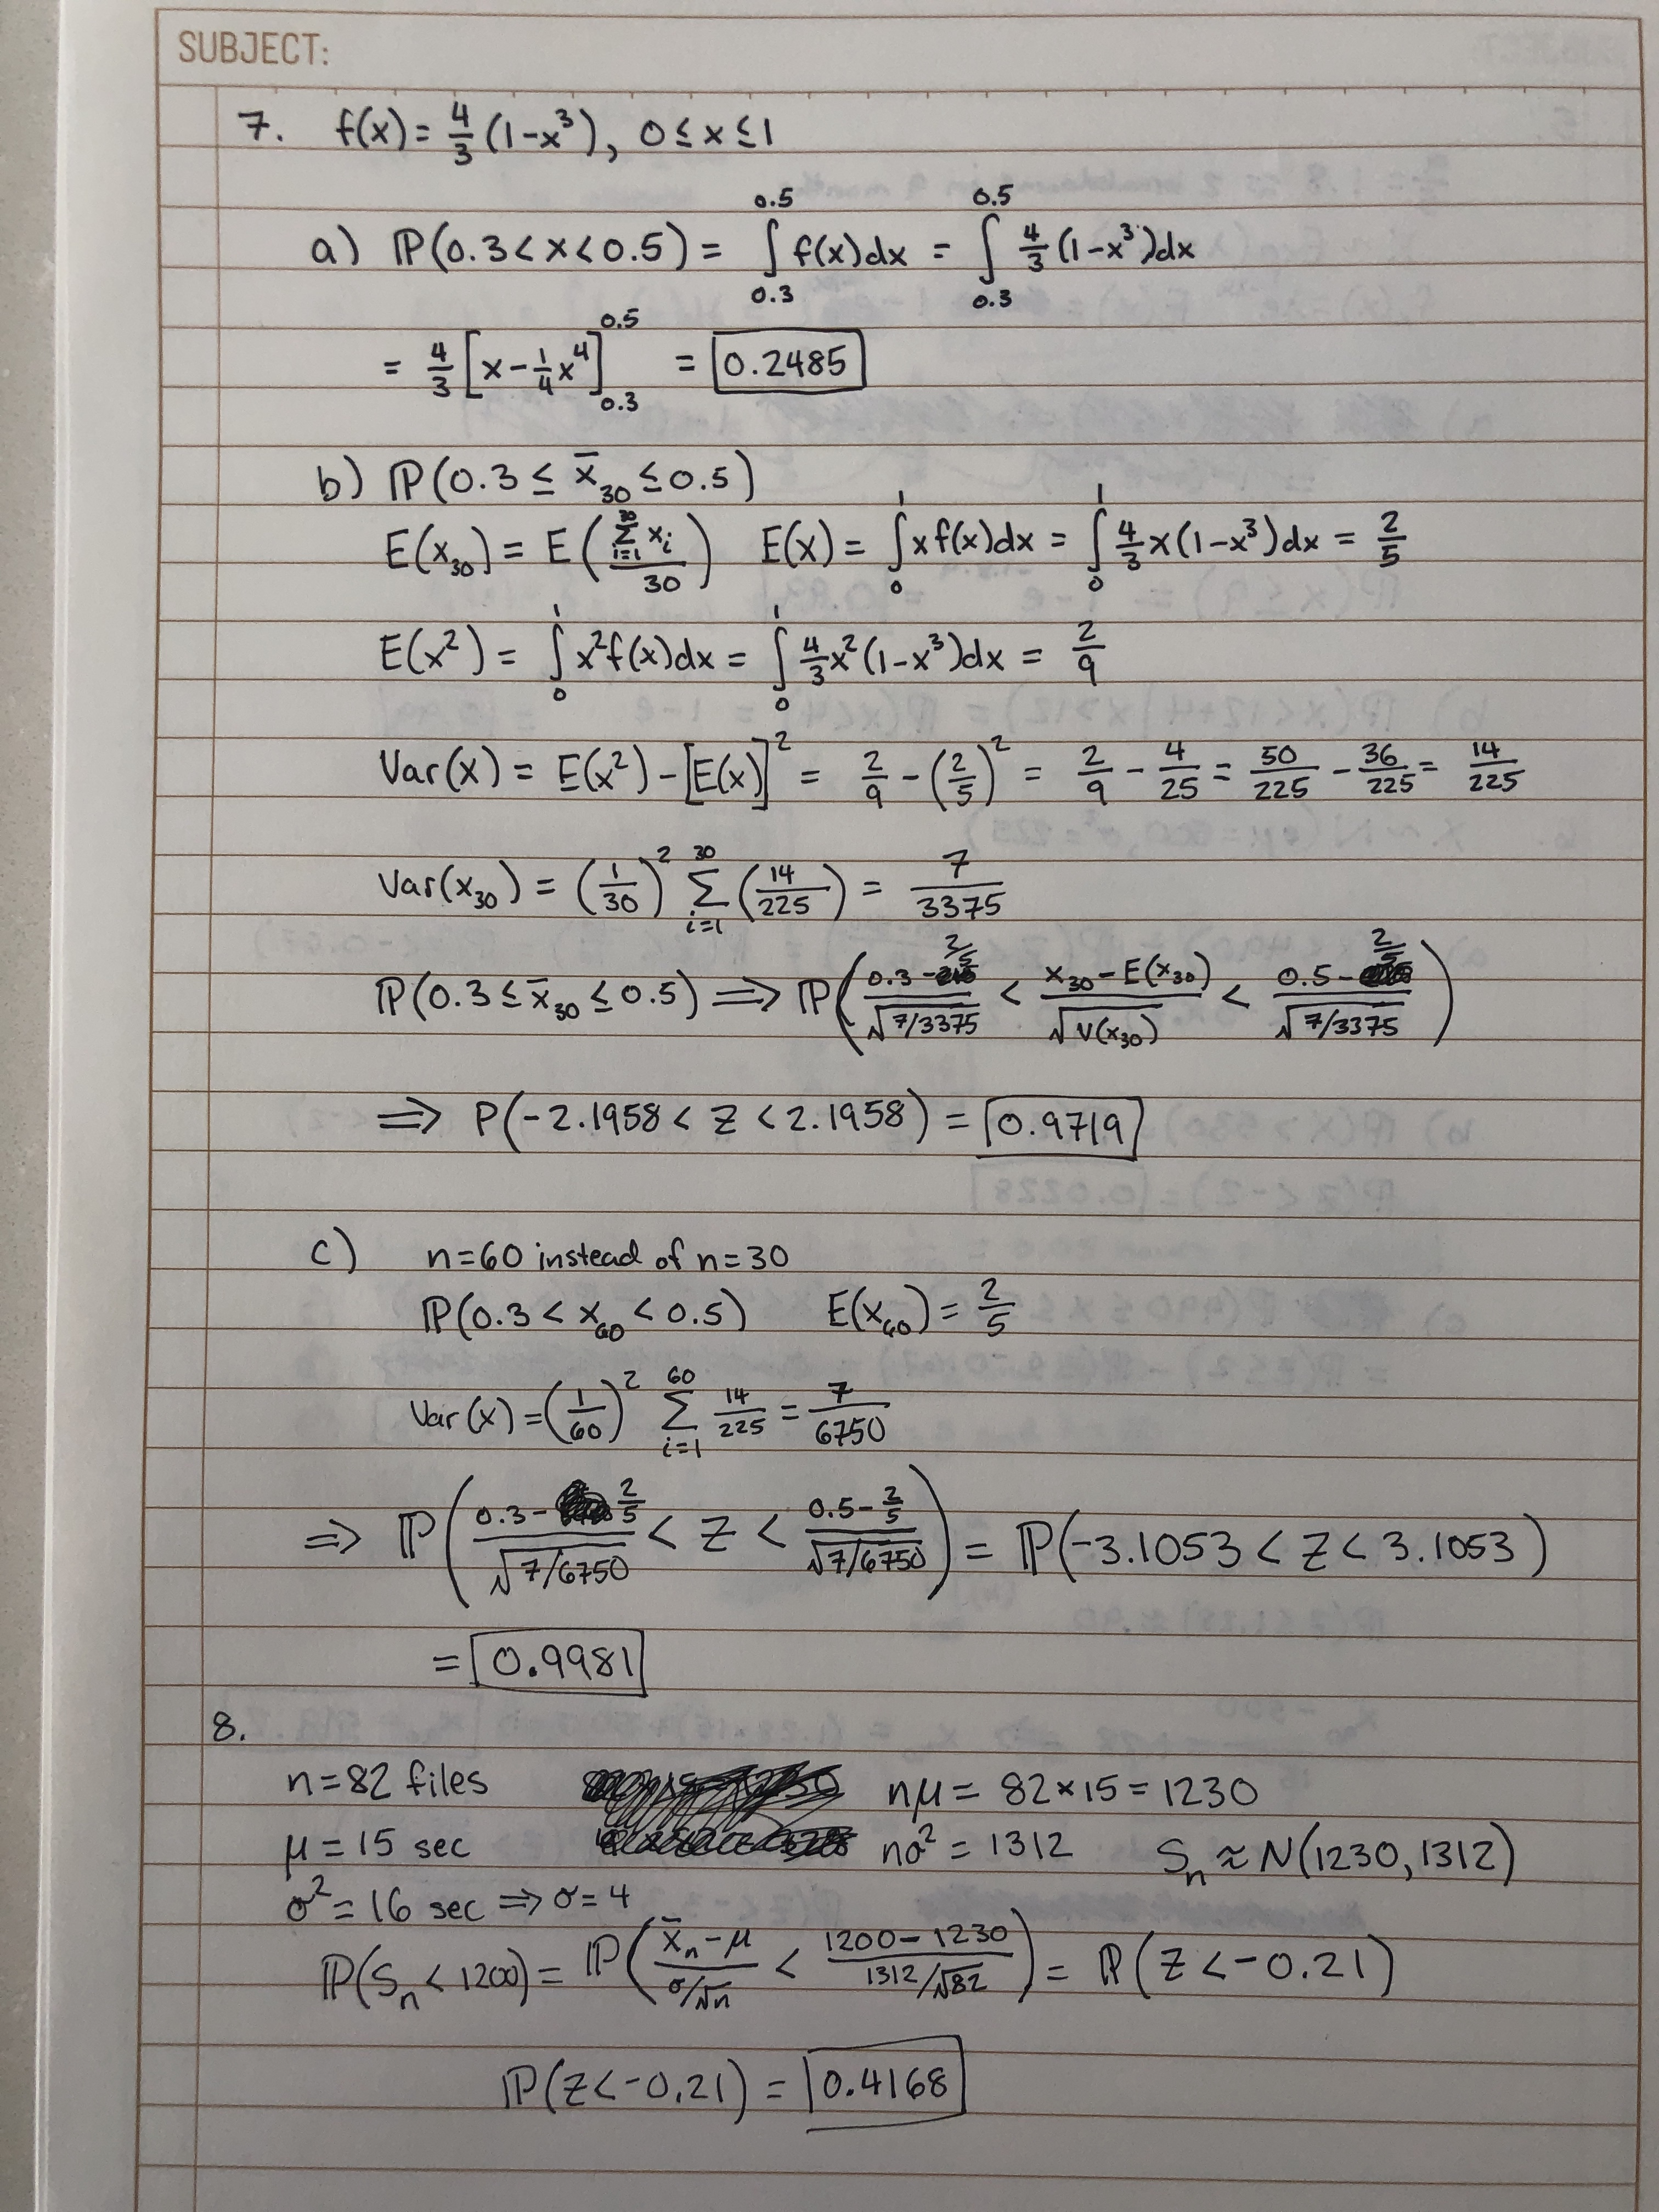 SUBJECT:
7. f(x) = 4/3 (1-x³), 0 ≤ x ≤ 1
a) ℙ(0.3 < x < 0.5) = ∫_{0.3}^{0.5} f(x)dx = ∫_{0.3}^{0.5} 4/3 (1-x³)dx
= 4/3 [x - 1/4 x⁴]_{0.3}^{0.5} = 0.2485
b) ℙ(0.3 ≤ x̄₃₀ ≤ 0.5)
E(x₃₀) = E(∑_{i=1}^{30} xᵢ / 30) E(x) = ∫_0^1 x f(x)dx = ∫_0^1 4/3 x(1-x³)dx = 2/5
E(x²) = ∫_0^1 x² f(x)dx = ∫_0^1 4/3 x²(1-x³)dx = 2/9
Var(x) = E(x²) - [E(x)]² = 2/9 - (2/5)² = 2/9 - 4/25 = 50/225 - 36/225 = 14/225
Var(x₃₀) = (1/30)² ∑_{i=1}^{30} (14/225) = 7/3375
ℙ(0.3 ≤ x̄₃₀ ≤ 0.5) ⟹ ℙ((0.3 - 2/5)/√(7/3375) < (x₃₀ - E(x₃₀))/√(V(x₃₀)) < (0.5 - 2/5)/√(7/3375))
⟹ P(-2.1958 < Z < 2.1958) = 0.9719
c) n=60 instead of n=30
ℙ(0.3 < x₆₀ < 0.5) E(x₆₀) = 2/5
Var(x) = (1/60)² ∑_{i=1}^{60} 14/225 = 7/6750
⟹ ℙ((0.3 - 2/5)/√(7/6750) < Z < (0.5 - 2/5)/√(7/6750)) = ℙ(-3.1053 < Z < 3.1053)
= 0.9981
8.
n=82 files nμ = 82×15 = 1230
μ = 15 sec nσ² = 1312 Sₙ ≈ N(1230, 1312)
σ² = 16 sec ⟹ σ = 4
ℙ(Sₙ < 1200) = ℙ((x̄ₙ - μ)/(σ/√n) < (1200 - 1230)/(1312/√82)) = ℙ(Z < -0.21)
ℙ(Z < -0.21) = 0.4168